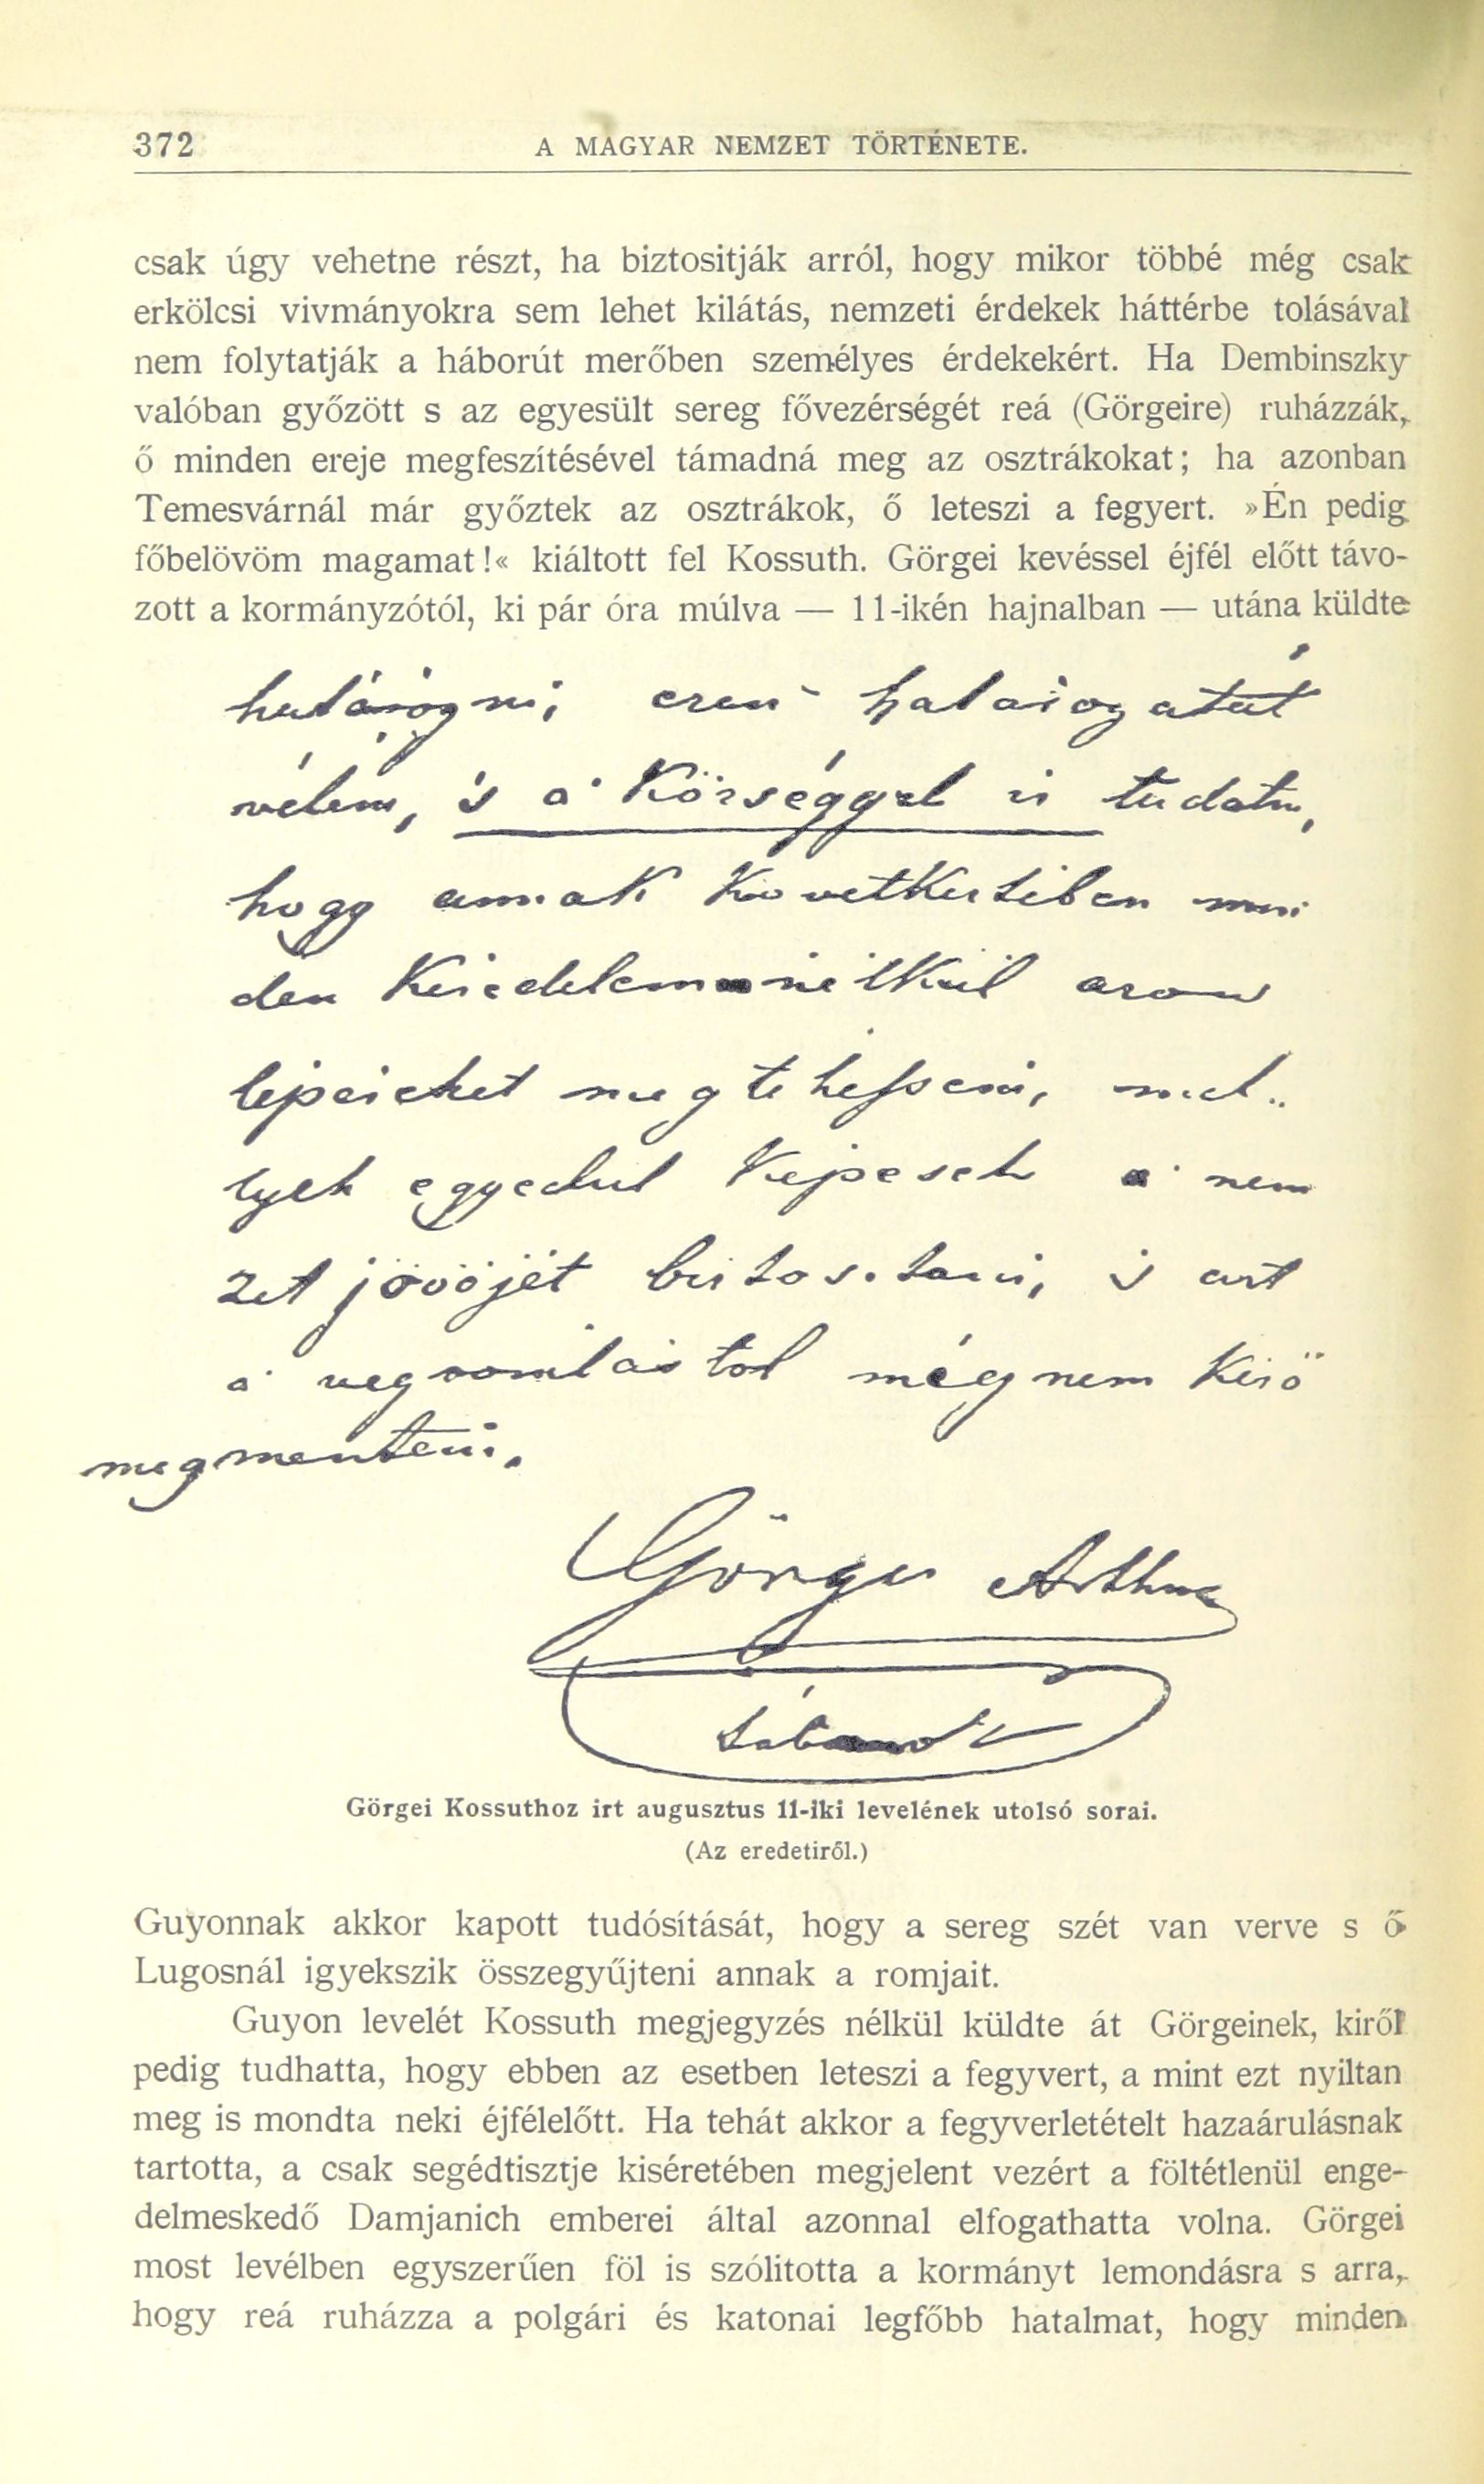 372
A MAGYAR NEMZET TÖRTÉNETE.
csak úgy vehetne részt, ha biztositják arról, hogy mikor többé még csak
erkölcsi vivmányokra sem lehet kilátás, nemzeti érdekek háttérbe tolásával
nem folytatják a háborút merőben személyes érdekekért. Ha Dembinszky
valóban győzött s az egyesült sereg fővezérségét reá (Görgeire) ruházzák,
ő minden ereje megfeszítésével támadná meg az osztrákokat; ha azonban
Temesvárnál már győztek az osztrákok, ő leteszi a fegyert. »Én pedig
főbelövöm magamat!« kiáltott fel Kossuth. Görgei kevéssel éjfél előtt távo-
zott a kormányzótól, ki pár óra múlva — 11-ikén hajnalban — utána küldte
határozni, ezen határozatát
velem, 's a' Községgel is tudatni,
hogy annak következtében min
den késedelem nélkül azon
lépéseket meg tehessem, mel..
lyek egyedül képesek a' nem
zet jövőjét biztositani, 's azt
a' vegromlástol még nem késő
megmenteni.
Görgei Arthur
tábornok
Görgei Kossuthoz irt augusztus 11-iki levelének utolsó sorai.
(Az eredetiről.)
Guyonnak akkor kapott tudósítását, hogy a sereg szét van verve s ő
Lugosnál igyekszik összegyűjteni annak a romjait.
Guyon levelét Kossuth megjegyzés nélkül küldte át Görgeinek, kiről
pedig tudhatta, hogy ebben az esetben leteszi a fegyvert, a mint ezt nyiltan
meg is mondta neki éjfélelőtt. Ha tehát akkor a fegyverletételt hazaárulásnak
tartotta, a csak segédtisztje kiséretében megjelent vezért a föltétlenül enge-
delmeskedő Damjanich emberei által azonnal elfogathatta volna. Görgei
most levélben egyszerűen föl is szólitotta a kormányt lemondásra s arra,
hogy reá ruházza a polgári és katonai legfőbb hatalmat, hogy minden